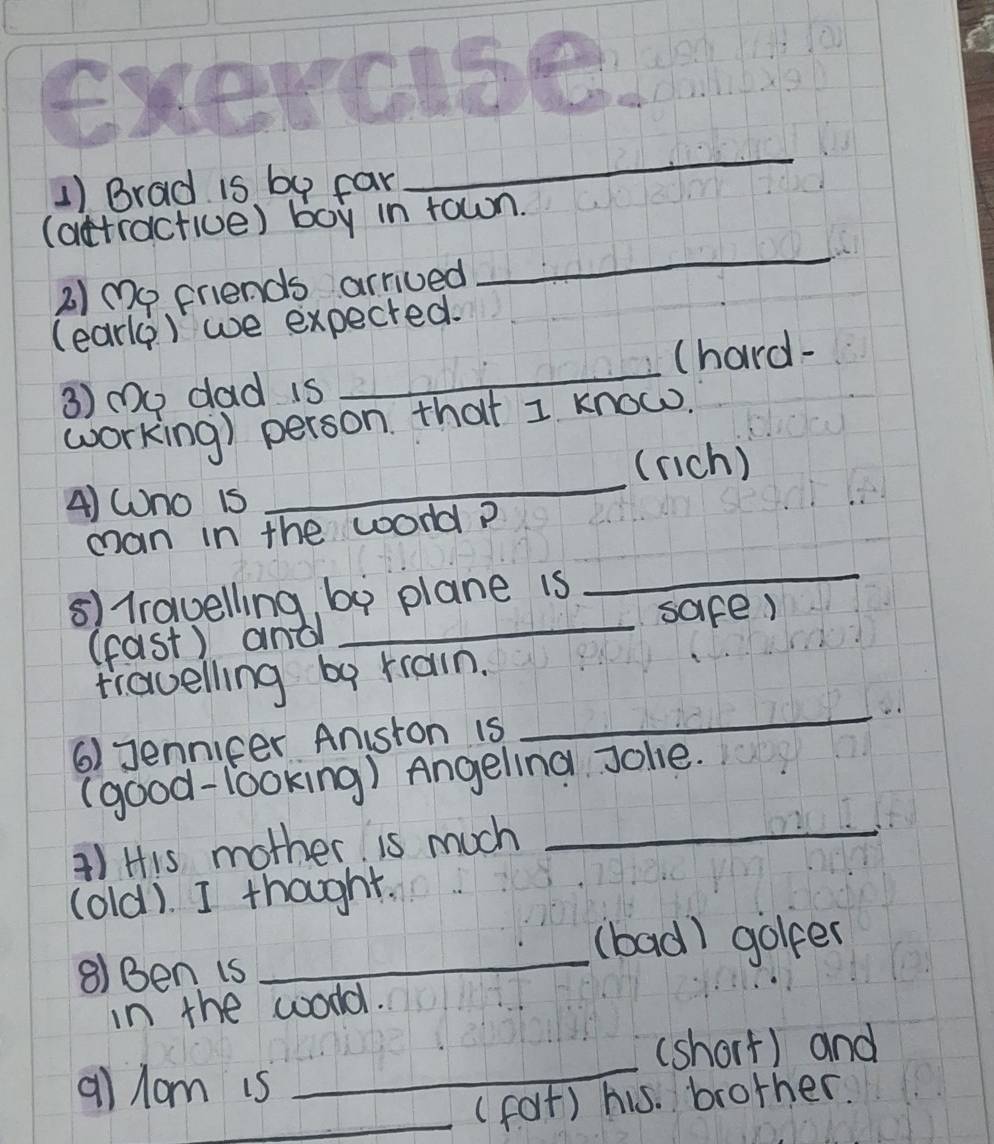 exercise.
1) Brad is by far ____________
(attractive) boy in town.
2) My friends arrived ____________
(early) we expected.
3) My dad is ____________ (hard-
working) person. that I know.
4) Who is ____________ (rich)
man in the world?
5) Travelling by plane is ____________
(fast) and ____________ safe)
travelling by train.
6) Jennifer Aniston is ____________
(good-looking) Angelina Jolie.
7) His mother is much ____________
(old). I thought.
8) Ben is ____________ (bad) golfer
in the world.
9) Tom is ____________ (short) and
____________ (fat) his. brother.